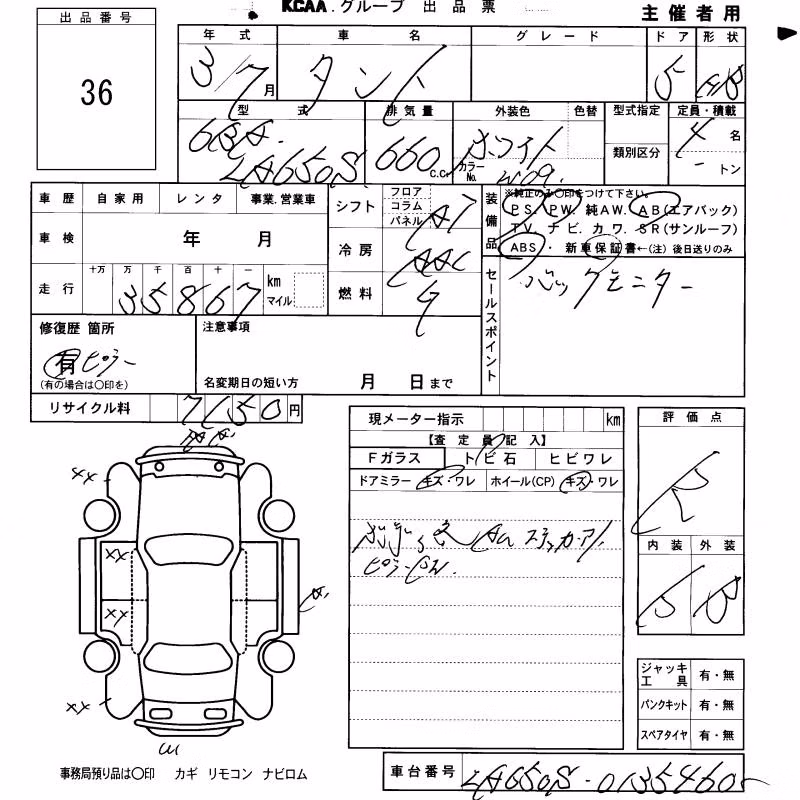 出品番号
36
KCAA.グループ 出品票
主催者用
年式 車名 グレード ドア 形状
3/7月 タント 5 HB
型式 排気量 外装色 色替 型式指定 定員・積載
6BA. LA650S 660 C.C. ホワイト カラーNo. W09. 類別区分 4名
-トン
車歴 自家用 レンタ 事業.営業車
シフト フロア コラム パネル AT
車検 年 月
冷房 AAC
走行 十万 万 千 百 十 一 km マイル
35867
燃料 G
装備品
※純正のみ○印をつけて下さい。
PS. PW. 純AW. AB(エアバック)
TV. ナビ. カワ. SR(サンルーフ)
ABS・新車保証書←(注)後日送りのみ
セールスポイント
バックモニター
修復歴 箇所
有 ピラー
(有の場合は○印を)
注意事項
名変期日の短い方 月 日まで
リサイクル料 7150円
現メーター指示 km
【査定員記入】
Fガラス トビ石 ヒビワレ
ドアミラー キズ・ワレ ホイール(CP) キズ・ワレ
ピラーSW.
評価点
R
内装 外装
B
ジャッキ工具 有・無
パンクキット 有・無
スペアタイヤ 有・無
XX
XX
XX
XX
A
W
事務局預り品は○印 カギ リモコン ナビロム
車台番号 LA650S-0135460